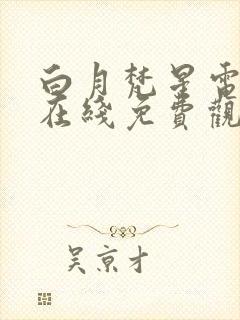 白月梵星電
在綫免費觀
吴京才